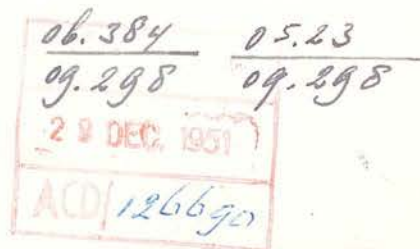 06.384 05.23
09.298 09.298
29 DEC. 1951
ACD/126690